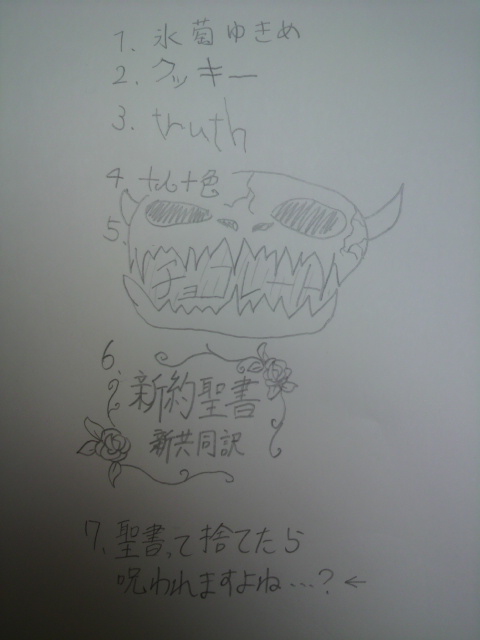 1. 氷菊ゆきめ
2. クッキー
3. truth
4 十人十色
5. チョコレート
6. 新約聖書
新共同訳
7. 聖書って捨てたら
呪われますよね…？←